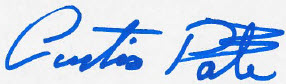 Curtis Pate